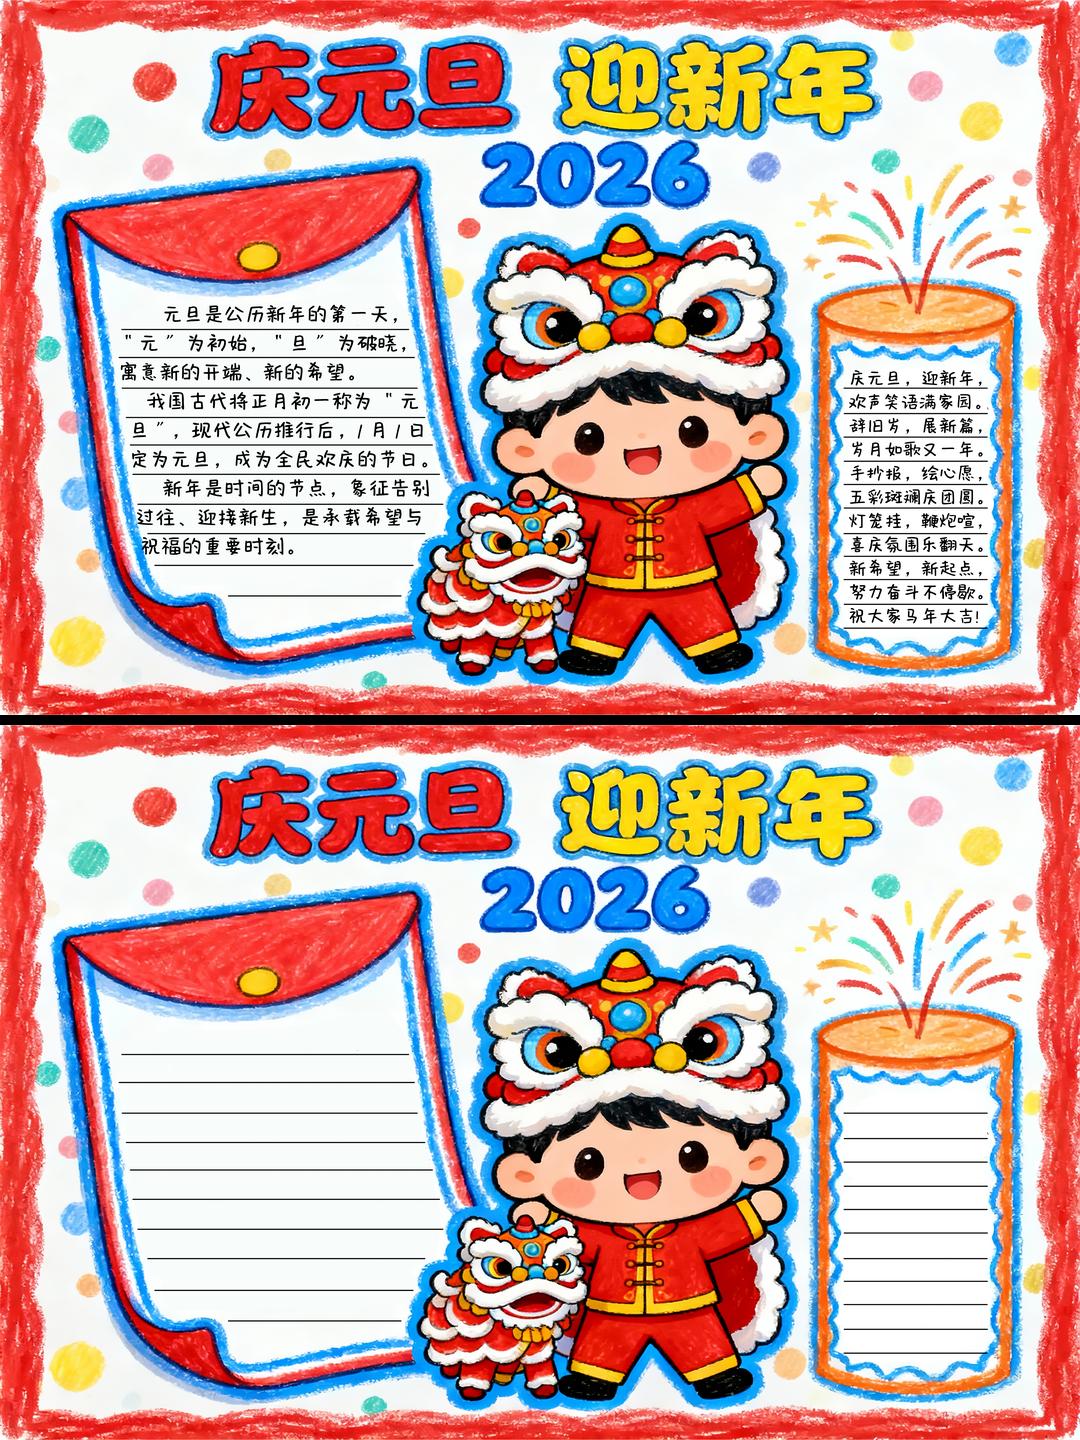 庆元旦 迎新年
2026
元旦是公历新年的第一天，
"元"为初始，"旦"为破晓，
寓意新的开端、新的希望。
我国古代将正月初一称为"元
旦"，现代公历推行后，1月1日
定为元旦，成为全民欢庆的节日。
新年是时间的节点，象征告别
过往、迎接新生，是承载希望与
祝福的重要时刻。
庆元旦，迎新年，
欢声笑语满家园。
辞旧岁，展新篇，
岁月如歌又一年。
手抄报，绘心愿，
五彩斑斓庆团圆。
灯笼挂，鞭炮喧，
喜庆氛围乐翻天。
新希望，新起点，
努力奋斗不停歇。
祝大家马年大吉!
庆元旦 迎新年
2026